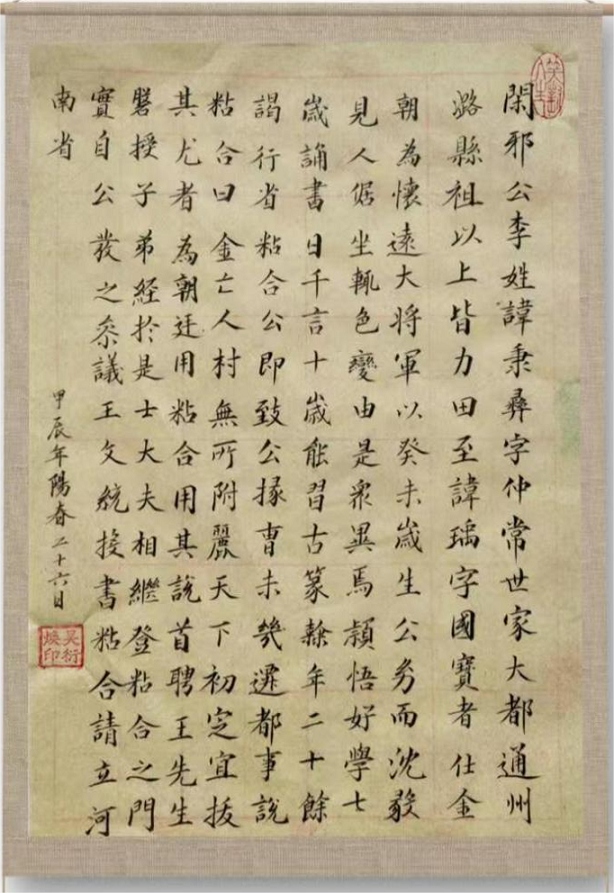 閑邪公李姓諱秉彝字仲常世家大都通州
潞縣祖以上皆力田至諱瑀字國寶者仕金
朝為懷遠大將軍以癸未歲生公劣而沈毅
見人倨坐輒色變由是衆異焉穎悟好學七
歲誦書日千言十歲能習古篆隸年二十餘
謁行省粘合公即致公掾曹未幾選都事說
粘合曰金亡人村無所附麗天下初定宜拔
其尤者為朝廷用粘合用其說首聘王先生
磐授子弟經於是士大夫相繼登粘合之門
實自公發之叅議王文統投書粘合請立河
南省
甲辰年陽春二十六日
吴衍煥印